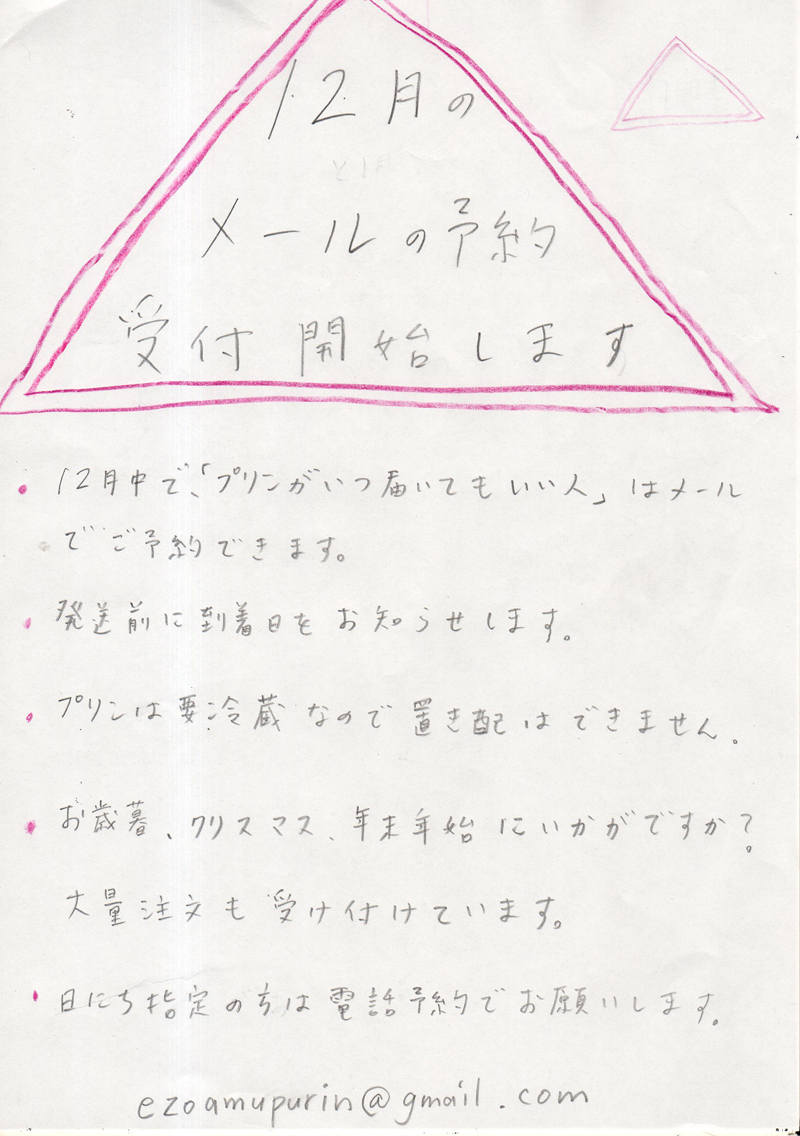 12月の
メールの予約
受付開始します
・12月中で、「プリンがいつ届いてもいい人」はメール
でご予約できます。
・発送前に到着日をお知らせします。
・プリンは要冷蔵なので置き配はできません。
・お歳暮、クリスマス、年末年始にいかがですか?
大量注文も受け付けています。
・日にち指定の方は電話予約でお願いします。
ezoamupurin@gmail.com